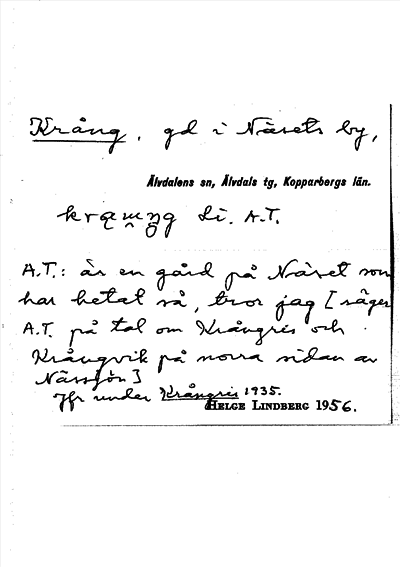 Krång, gd i Näsets by,
Älvdalens sn, Älvdals tg, Kopparbergs län.
Li. A.T.
A.T.: är en gård på Näset som
har hetat så, tror jag [säger
A.T. på tal om Krångris och
Krångvik på norra sidan av
Nässjön]
Jfr under Krångris 1935.
HELGE LINDBERG 1956.